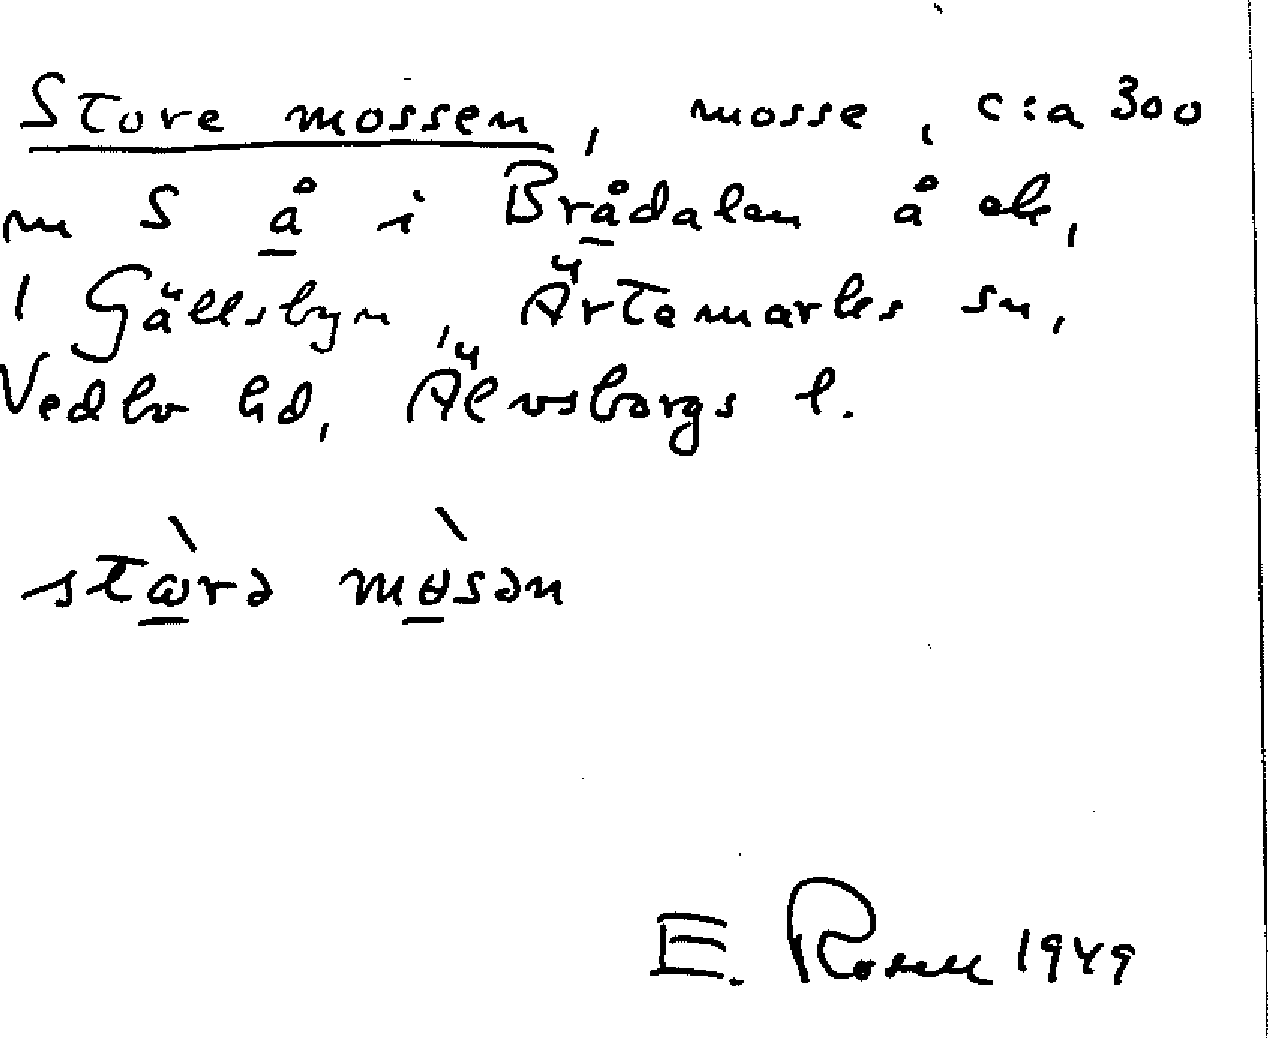 Store mossen, mosse, c:a 300
m S å i Brådalen å ek,
1 Gällsbyn, Ärtemarks sn,
Vedbo hd, Älvsborgs l.
stɷ̀rə mɵ̀sən
E. Rosell 1949